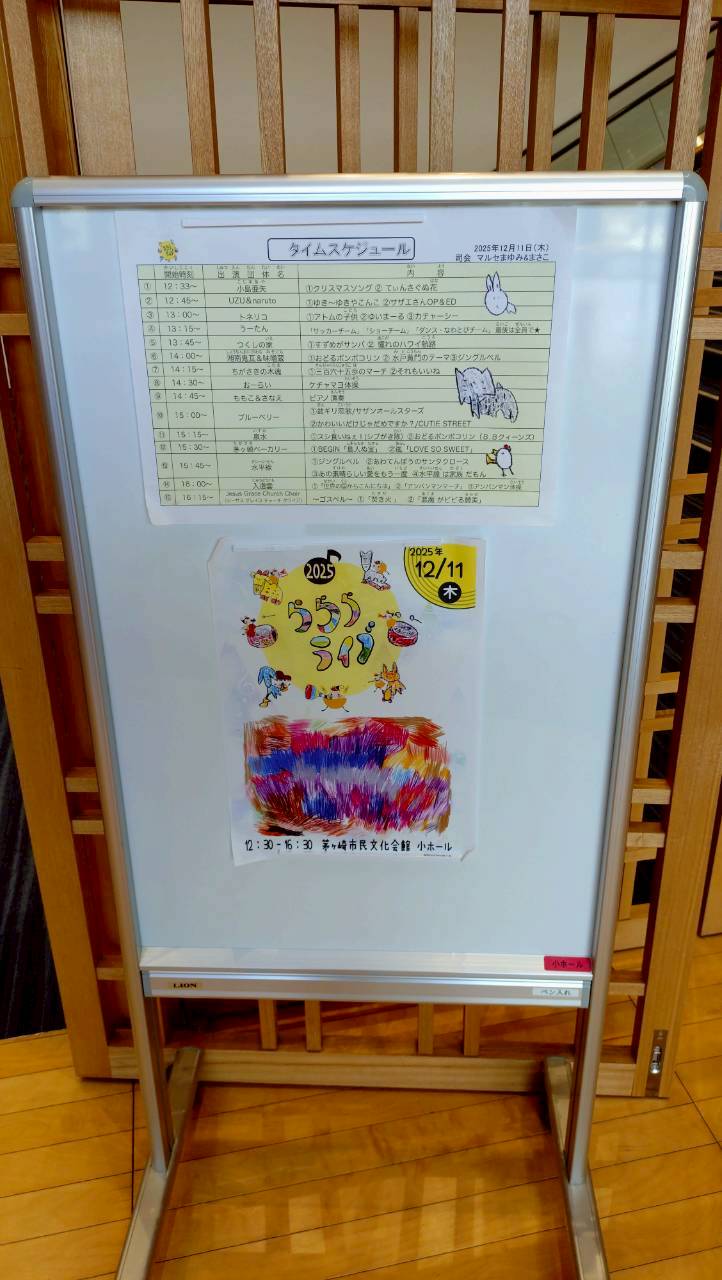 タイムスケジュール
2025年12月11日(木)
司会 マルセまゆみ&まさこ
開始時刻 出演団体名 内容
① 12:33〜 小島亜矢 ①クリスマスソング ② てぃんさぐぬ花
② 12:45〜 UZU&naruto ①ゆき〜ゆきやこんこ ②サザエさんOP&ED
③ 13:00〜 トネリコ ①アトムの子供 ②ゆいまーる ③カチャーシー
④ 13:15〜 うーたん 「サッカーチーム」「ショーチーム」「ダンス・なわとびチーム」最後は全員で★
⑤ 13:45〜 つくしの家 ①すずめがサンバ ② 憧れのハワイ航路
⑥ 14:00〜 湘南鬼瓦&味噌蔵 ①おどるポンポコリン ② 水戸黄門のテーマ③ジングルベル
⑦ 14:15〜 ちがさきの木魂 ①三百六十五歩のマーチ ②それもいいね
⑧ 14:30〜 お〜らい ケチャマヨ体操
⑨ 14:45〜 ももこ&さなえ ピアノ演奏
⑩ 15:00〜 ブルーベリー ①鎌ギリ恋歌/サザンオールスターズ
②かわいいだけじゃだめですか?/CUTIE STREET
⑪ 15:15〜 翼水 ①スシ食いねぇ!(シブがき隊) ②おどるポンポコリン(B.Bクィーンズ)
⑫ 15:30〜 茅ヶ崎ベーカリー ①BEGIN「島人ぬ宝」 ②嵐「LOVE SO SWEET」
⑬ 15:45〜 水平線 ①ジングルベル ②あわてんぼうのサンタクロース
③あの素晴らしい愛をもう一度 ④水平線 は家族 だもん
⑭ 16:00〜 入道雲 ①「世界の国からこんにちは」 ②「アンパンマンマーチ」 ③アンパンマン体操
⑮ 16:15〜 Jesus Grace Church Choir 〜ゴスペル〜 ①「焚き火」 ②「悪魔 がビビる賛美」
(ジーザス グレイス チャーチ クワイア)
2025
2025年
12/11
木
ららら
ライブ
12:30-16:30 茅ヶ崎市民文化会館 小ホール
小ホール
LION
ペン入れ